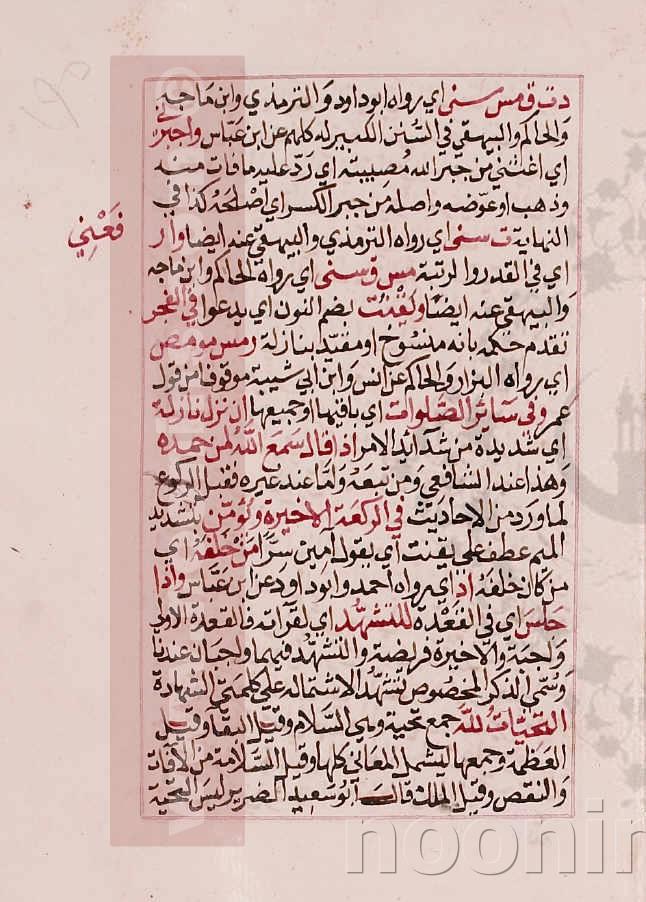 دت ق مس سنى اي رواه ابوداود والترمذي وابن ماجه
والحاكم والبيهقي في السنن الكبير له كلهم عن ابن عباس واجبرني
اي اغنني من جبر الله مصيبته اي رد عليه ما فات منه
وذهب او عوضه واصله من جبر الكسر اي اصلحه كذا في
النهاية ت سنى اي رواه الترمذي والبيهقي عنه ايضا وار
فعني
اي في القدر والرتبة مس ق سنى اي رواه الحاكم وابن ماجه
والبيهقي عنه ايضا ويقنت بضم النون اي يدعوا في الفجر
تقدم حكمه بانه منسوخ او مقيد بنازلة ر مس مو مص
اي رواه البزار والحاكم عن انس وابن ابي شيبة موقوفا من قول
عمر وفي سائر الصلوات اي باقيها او جميعها ان نزل نازلة
اي شديدة من شدائد الامر اذا قال سمع الله لمن حمده
وهذا عند الشافعي ومن تبعه واما عند غيره فقبل الركوع
لما ورد من الاحاديث في الركعة الاخيرة ويؤمن بتشديد
الميم عطف على يقنت اي يقول آمين سرا من خلفه اي
من كان خلفه اد اي رواه احمد وابو داود عن ابن عباس واذا
جلس اي في القعدة للتشهد اي لقرآته فالقعدة الاولى
واجبة والاخيرة فريضة والتشهد فيهما واجبان عندنا
وسمي الذكر المخصوص تشهدا لاشتماله على كلمتي الشهادة
التحيات لله جمع تحية وهي السلام وقيل البقا وقيل
العظمة وجمعها ليشمل المعاني كلها وقيل السلامة من الآفات
والنقص وقيل الملك قال ابو سعيد الضرير ليس التحية
noonin